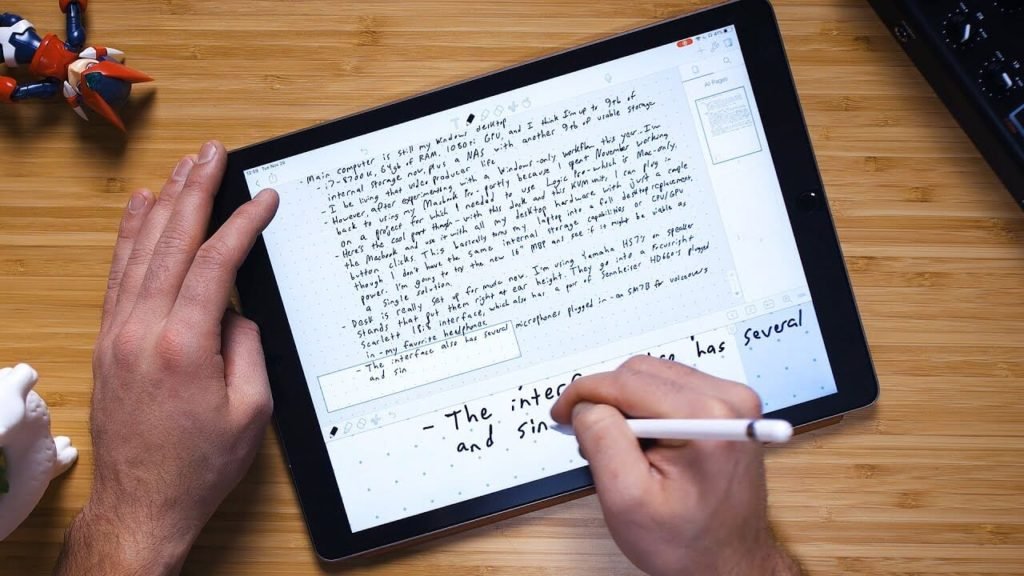 Tue Nov 26
All Pages
- Main computer is still my Windows desktop
- i7-8700K, 64gb of RAM, 1080ti GPU, and I think I'm up to 9tb of
internal storage now, plus a NAS with another 9tb of usable storage
- I be living that video producer life
- However, after experimenting with a Windows-only workflow this year, I'm
back to using my Macbook Pro, partly because I spent November working
on a project for which I needed to use Logic Pro - which is Mac-only.
- Here's the cool part though - with this dock and this KVM unit, I can plug in
the Macbook and use it with all my desktop hardware with just a couple
button clicks. This basically turns my laptop into a full desktop replacement,
though I don't have the same internal storage capabilities or CPU/GPU
power. I'm going to try the new 16" MBP and see if it might be viable as
a single solution.
- Desk is really set up for music now. I'm using Yamaha HS7s on speaker
stands that put them right at ear height. They go into a Focusright
Scarlett 18i8 interface, which also has a pair of Sennheiser HD660s plugged
in - my favorite headphones
- The interface also has several microphones plugged in - an SM7B for voiceovers
and sin
- The interf has several
and sin